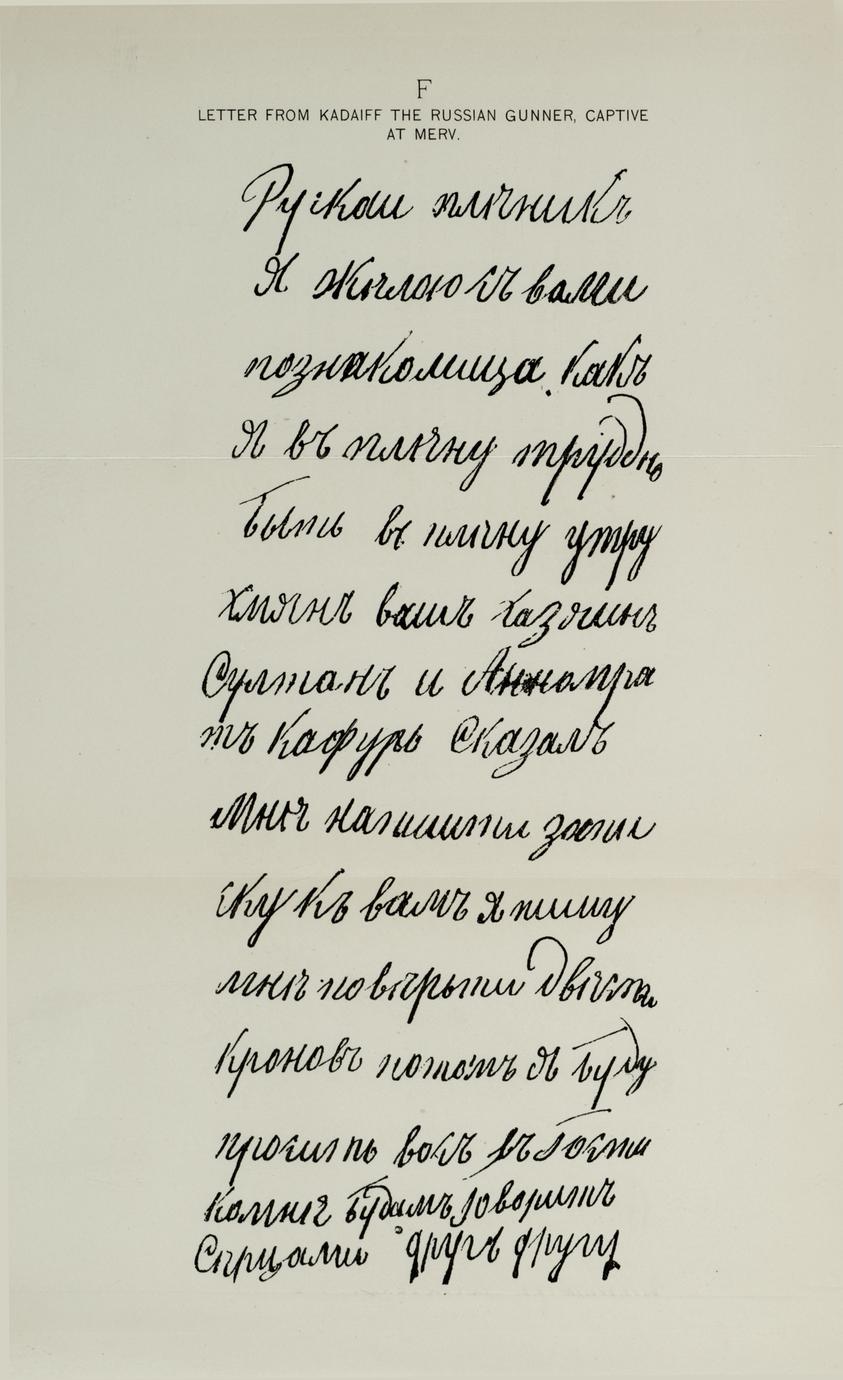 F
LETTER FROM KADAIFF THE RUSSIAN GUNNER, CAPTIVE
AT MERV.
Рускаи плѣникъ
Я жѣлою съ вами
познакомища. какъ
я въ плѣну трудно
быть вс плѣну утру
хмянъ вашъ хазяинъ
Султанъ и Аннамра
тъ Кафуръ Сказалъ
Мнѣ напишити запи
ску къ вамъ я пишу
мнѣ повѣрыти двѣсти
кроновъ потомъ я буду
просить васъ въ Гости
комнѣ будамъ говоритъ
Сѣрцами другъ другу